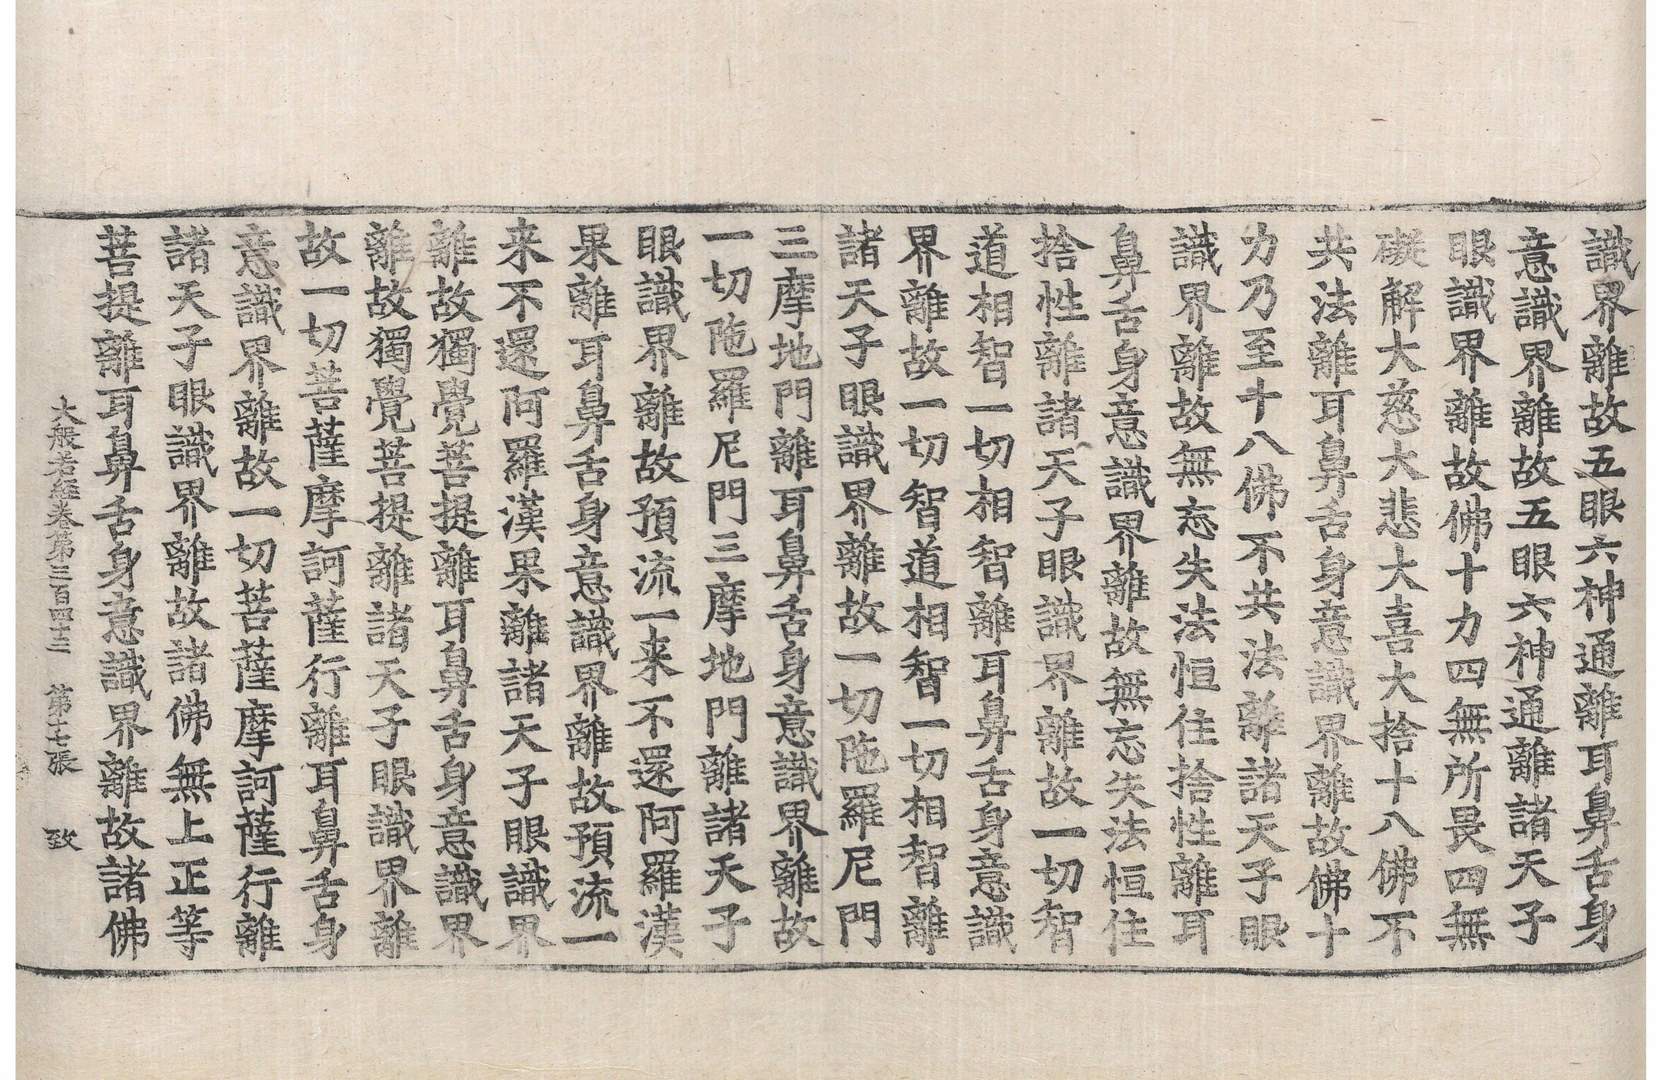 識界離故五眼六神通離耳鼻舌身
意識界離故五眼六神通離諸天子
眼識界離故佛十力四無所畏四無
礙解大慈大悲大喜大捨十八佛不
共法離耳鼻舌身意識界離故佛十
力乃至十八佛不共法離諸天子眼
識界離故無忘失法恒住捨性離耳
鼻舌身意識界離故無忘失法恒住
捨性離諸天子眼識界離故一切智
道相智一切相智離耳鼻舌身意識
界離故一切智道相智一切相智離
諸天子眼識界離故一切陁羅尼門
三摩地門離耳鼻舌身意識界離故
一切陁羅尼門三摩地門離諸天子
眼識界離故預流一来不還阿羅漢
果離耳鼻舌身意識界離故預流一
来不還阿羅漢果離諸天子眼識界
離故獨覺菩提離耳鼻舌身意識界
離故獨覺菩提離諸天子眼識界離
故一切菩薩摩訶薩行離耳鼻舌身
意識界離故一切菩薩摩訶薩行離
諸天子眼識界離故諸佛無上正等
菩提離耳鼻舌身意識界離故諸佛
大般若經卷第三百四十三 第十七張 致